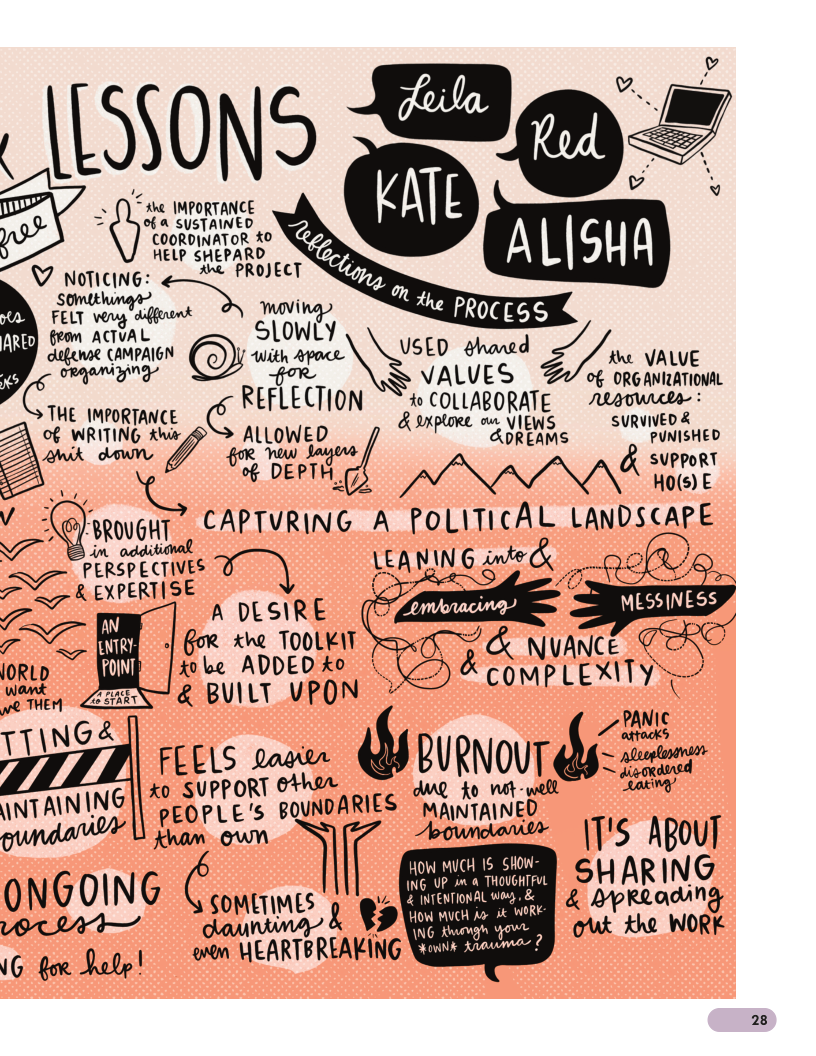 LESSONS
Leila
Red
KATE
ALISHA
reflections on the PROCESS
free
the IMPORTANCE
of a SUSTAINED
COORDINATOR to
HELP SHEPARD
the PROJECT
NOTICING:
somethings
FELT very different
from ACTUAL
defense CAMPAIGN
organizing
moving
SLOWLY
with space
for
REFLECTION
USED shared
VALUES
to COLLABORATE
& explore our VIEWS
& DREAMS
the VALUE
of ORGANIZATIONAL
resources:
SURVIVED &
PUNISHED
& SUPPORT
HO(S)E
THE IMPORTANCE
of WRITING this
shit down
ALLOWED
for new layers
of DEPTH
CAPTURING A POLITICAL LANDSCAPE
BROUGHT
in additional
PERSPECTIVES
& EXPERTISE
LEANING into &
embracing
MESSINESS
& NUANCE
& COMPLEXITY
AN
ENTRY-
POINT
A PLACE
to START
A DESIRE
for the TOOLKIT
to be ADDED to
& BUILT UPON
WORLD
want
THEM
TTING &
AINTAINING
oundaries
FEELS easier
to SUPPORT other
PEOPLE'S BOUNDARIES
than own
BURNOUT
due to not-well
MAINTAINED
boundaries
PANIC
attacks
sleeplessness
disordered
eating
ONGOING
rocess
NG for help!
SOMETIMES
daunting &
even HEARTBREAKING
HOW MUCH IS SHOW-
ING UP in a THOUGHTFUL
& INTENTIONAL way, &
HOW MUCH is it WORK-
ING through your
*OWN* trauma?
IT'S ABOUT
SHARING
& spreading
out the WORK
28